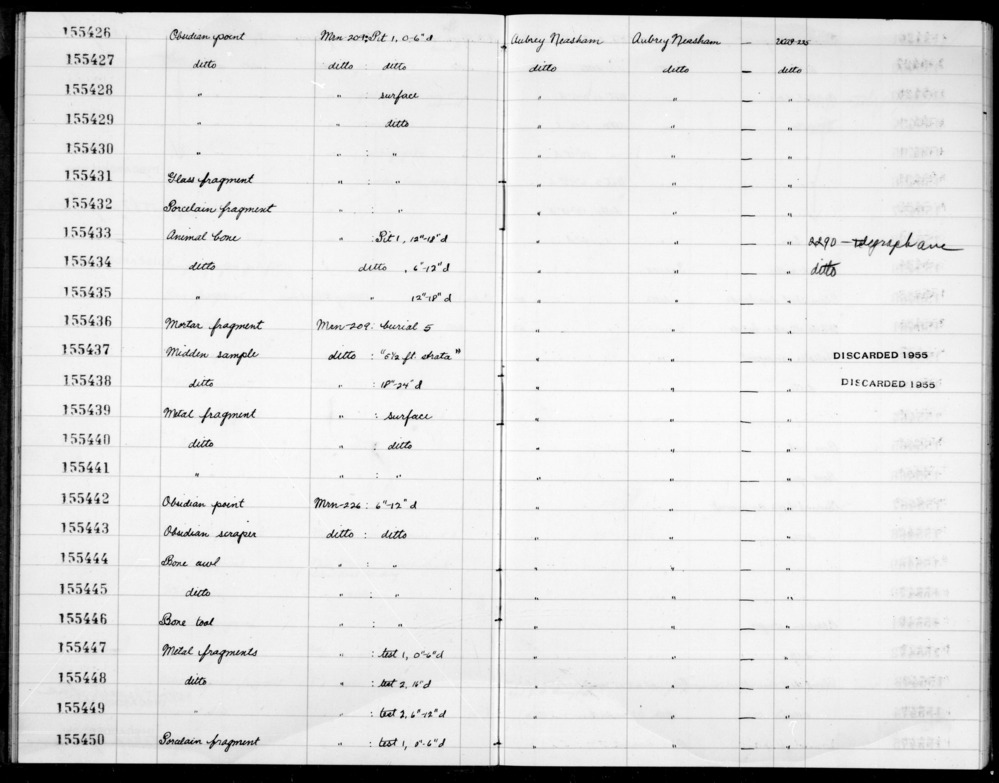 155426 Obsidian point Mrn-209: Pit 1, 0-6"d Aubrey Neasham Aubrey Neasham —
155427 ditto ditto : ditto ditto ditto — ditto
155428 " " : surface " " — "
155429 " " ditto " " — "
155430 " " : " " " — "
155431 Glass fragment " : " " " — "
155432 Porcelain fragment " : " " " — "
155433 Animal bone " : Pit 1, 12"-18"d " " — " 2290 - telegraph ave
155434 ditto ditto , 6"-12"d " " — " ditto
155435 " " 12"-18"d " " — "
155436 Mortar fragment Mrn-209: burial 5 " " — "
155437 Midden sample ditto : "5½ ft. strata" " " — " DISCARDED 1955
155438 ditto " : 18"-24"d " " — " DISCARDED 1955
155439 Metal fragment " : surface " " — "
155440 ditto " : ditto " " — "
155441 " " : " " " — "
155442 Obsidian point Mrn-226 : 6"-12"d " " — "
155443 Obsidian scraper ditto : ditto " " — "
155444 Bone awl " : " " " — "
155445 ditto " : " " " — "
155446 Bone tool " : " " " — "
155447 Metal fragments " : test 1, 0"-6"d " " — "
155448 ditto " : test 2, 16"d " " — "
155449 " " : test 2, 6"-12"d " " — "
155450 Porcelain fragment " : test 1, 0"-6"d " " — "